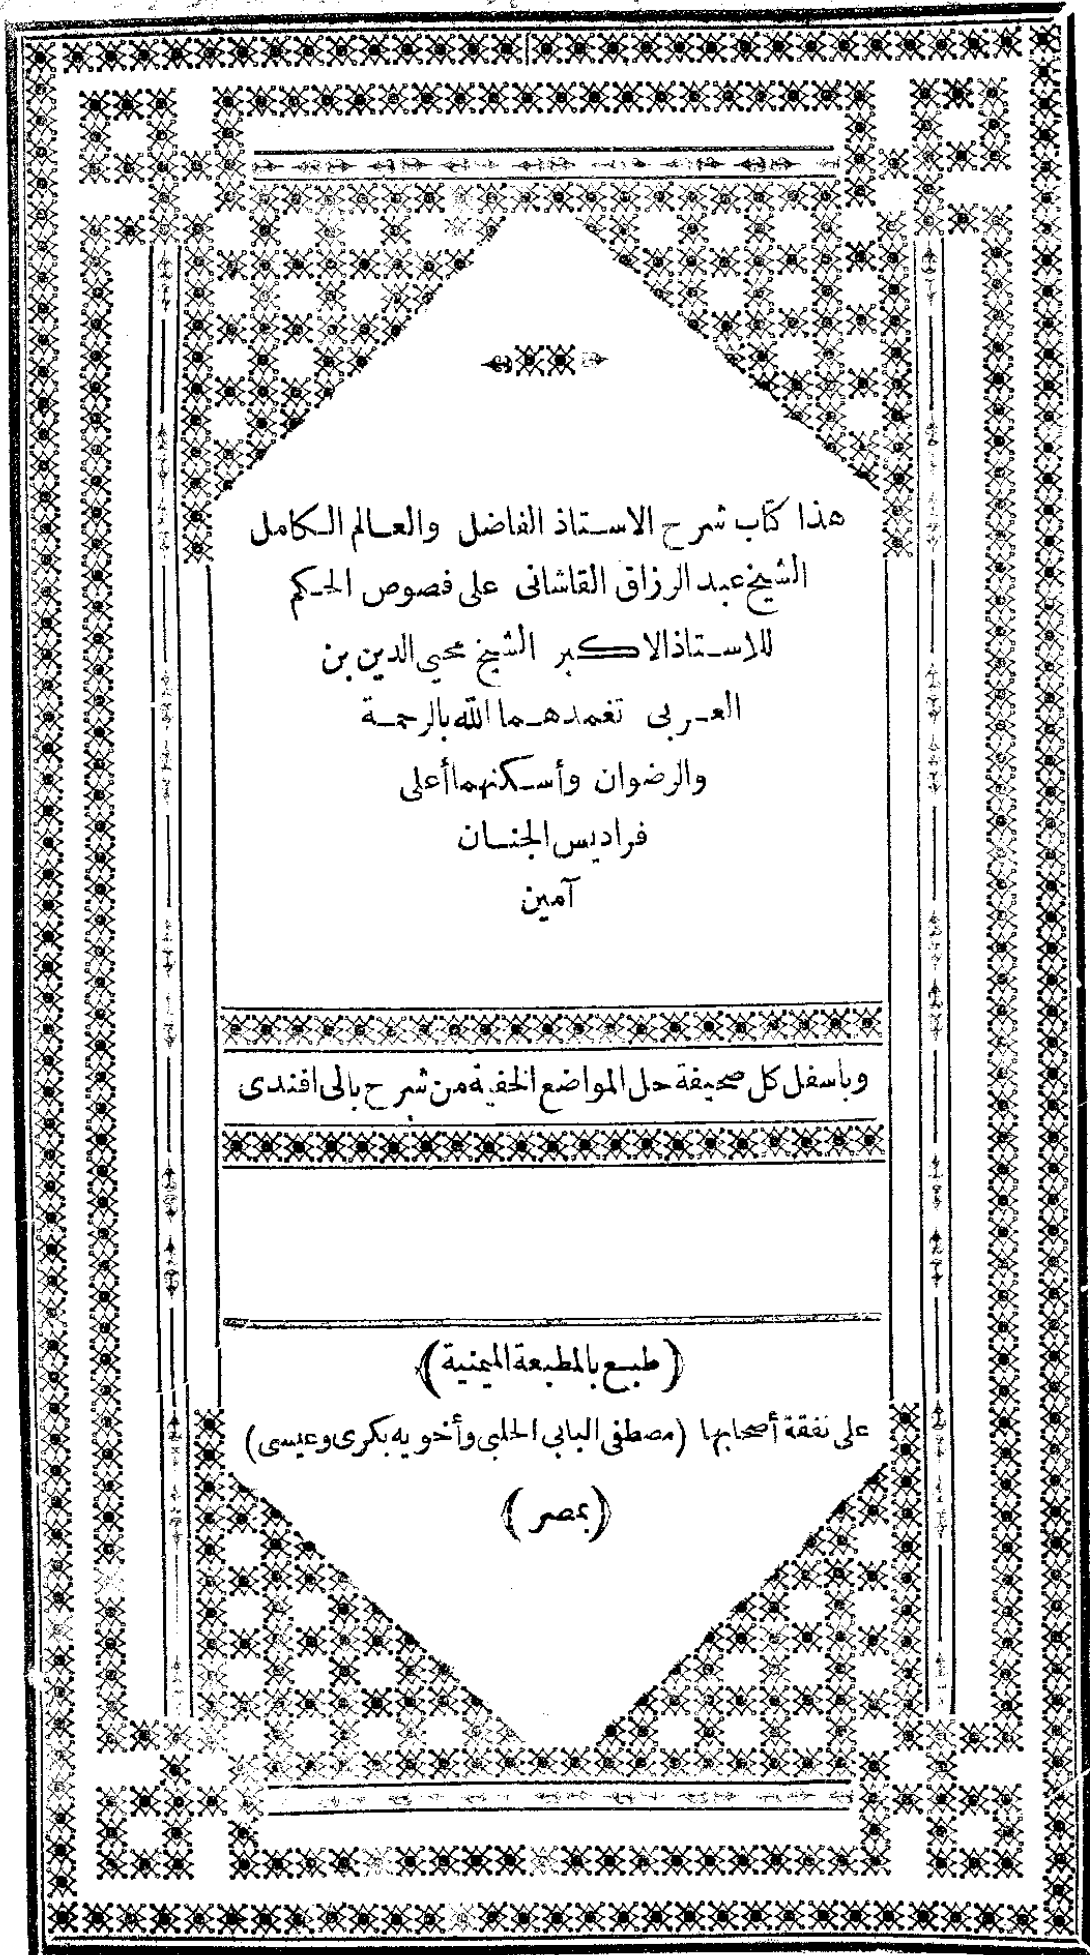 هذا كتاب شرح الاستاذ الفاضل والعالم الكامل
الشيخ عبد الرزاق القاشانى على فصوص الحكم
للاستاذ الاكبر الشيخ محيي الدين بن
العربى تغمدهما الله بالرحمة
والرضوان وأسكنهما أعلى
فراديس الجنان
آمين
وباسفل كل صحيفة حل المواضع الخفية من شرح بالى افندى
(طبع بالمطبعة الميمنية)
على نفقة أصحابها (مصطفى البابي الحلبي وأخويه بكرى وعيسى)
(بمصر)